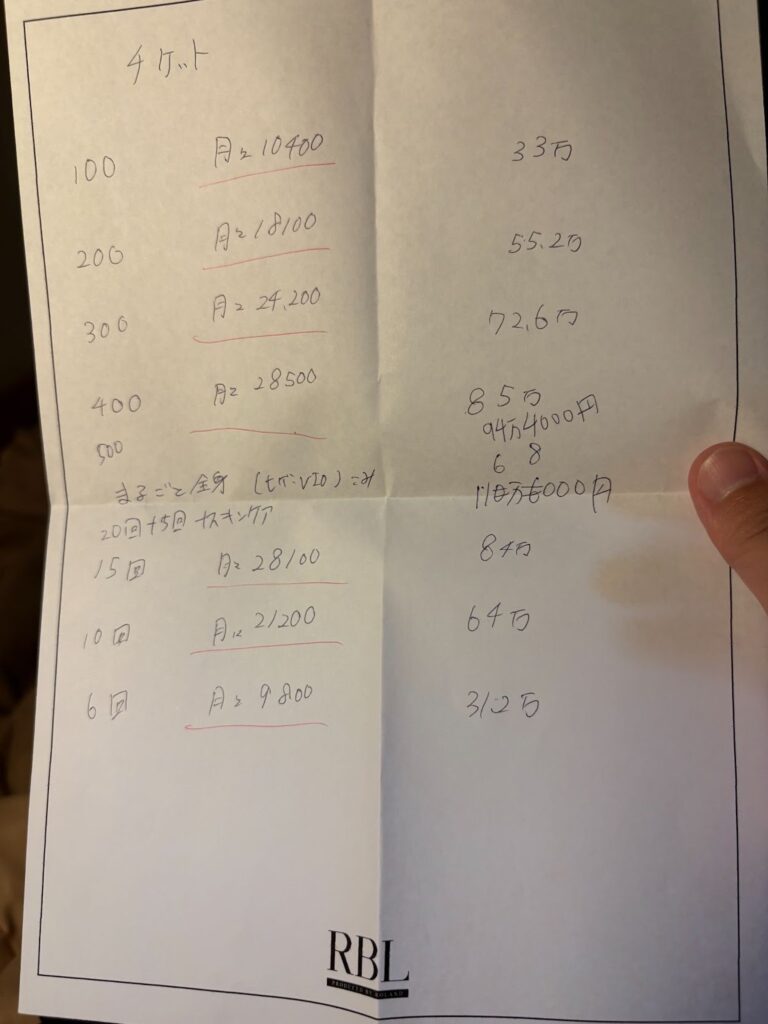 チケット
100 月々10400 33万
200 月々18100 55.2万
300 月々24,200 72.6万
400 月々28500 85万
500 94万4000円
6 8
まるごと全身 (ヒゲ・VIO)こみ 000円
20回+5回 スキンケア
15回 月々28100 84万
10回 月々21200 64万
6回 月々9800 31.2万
RBL
PRODUCED BY ROLAND